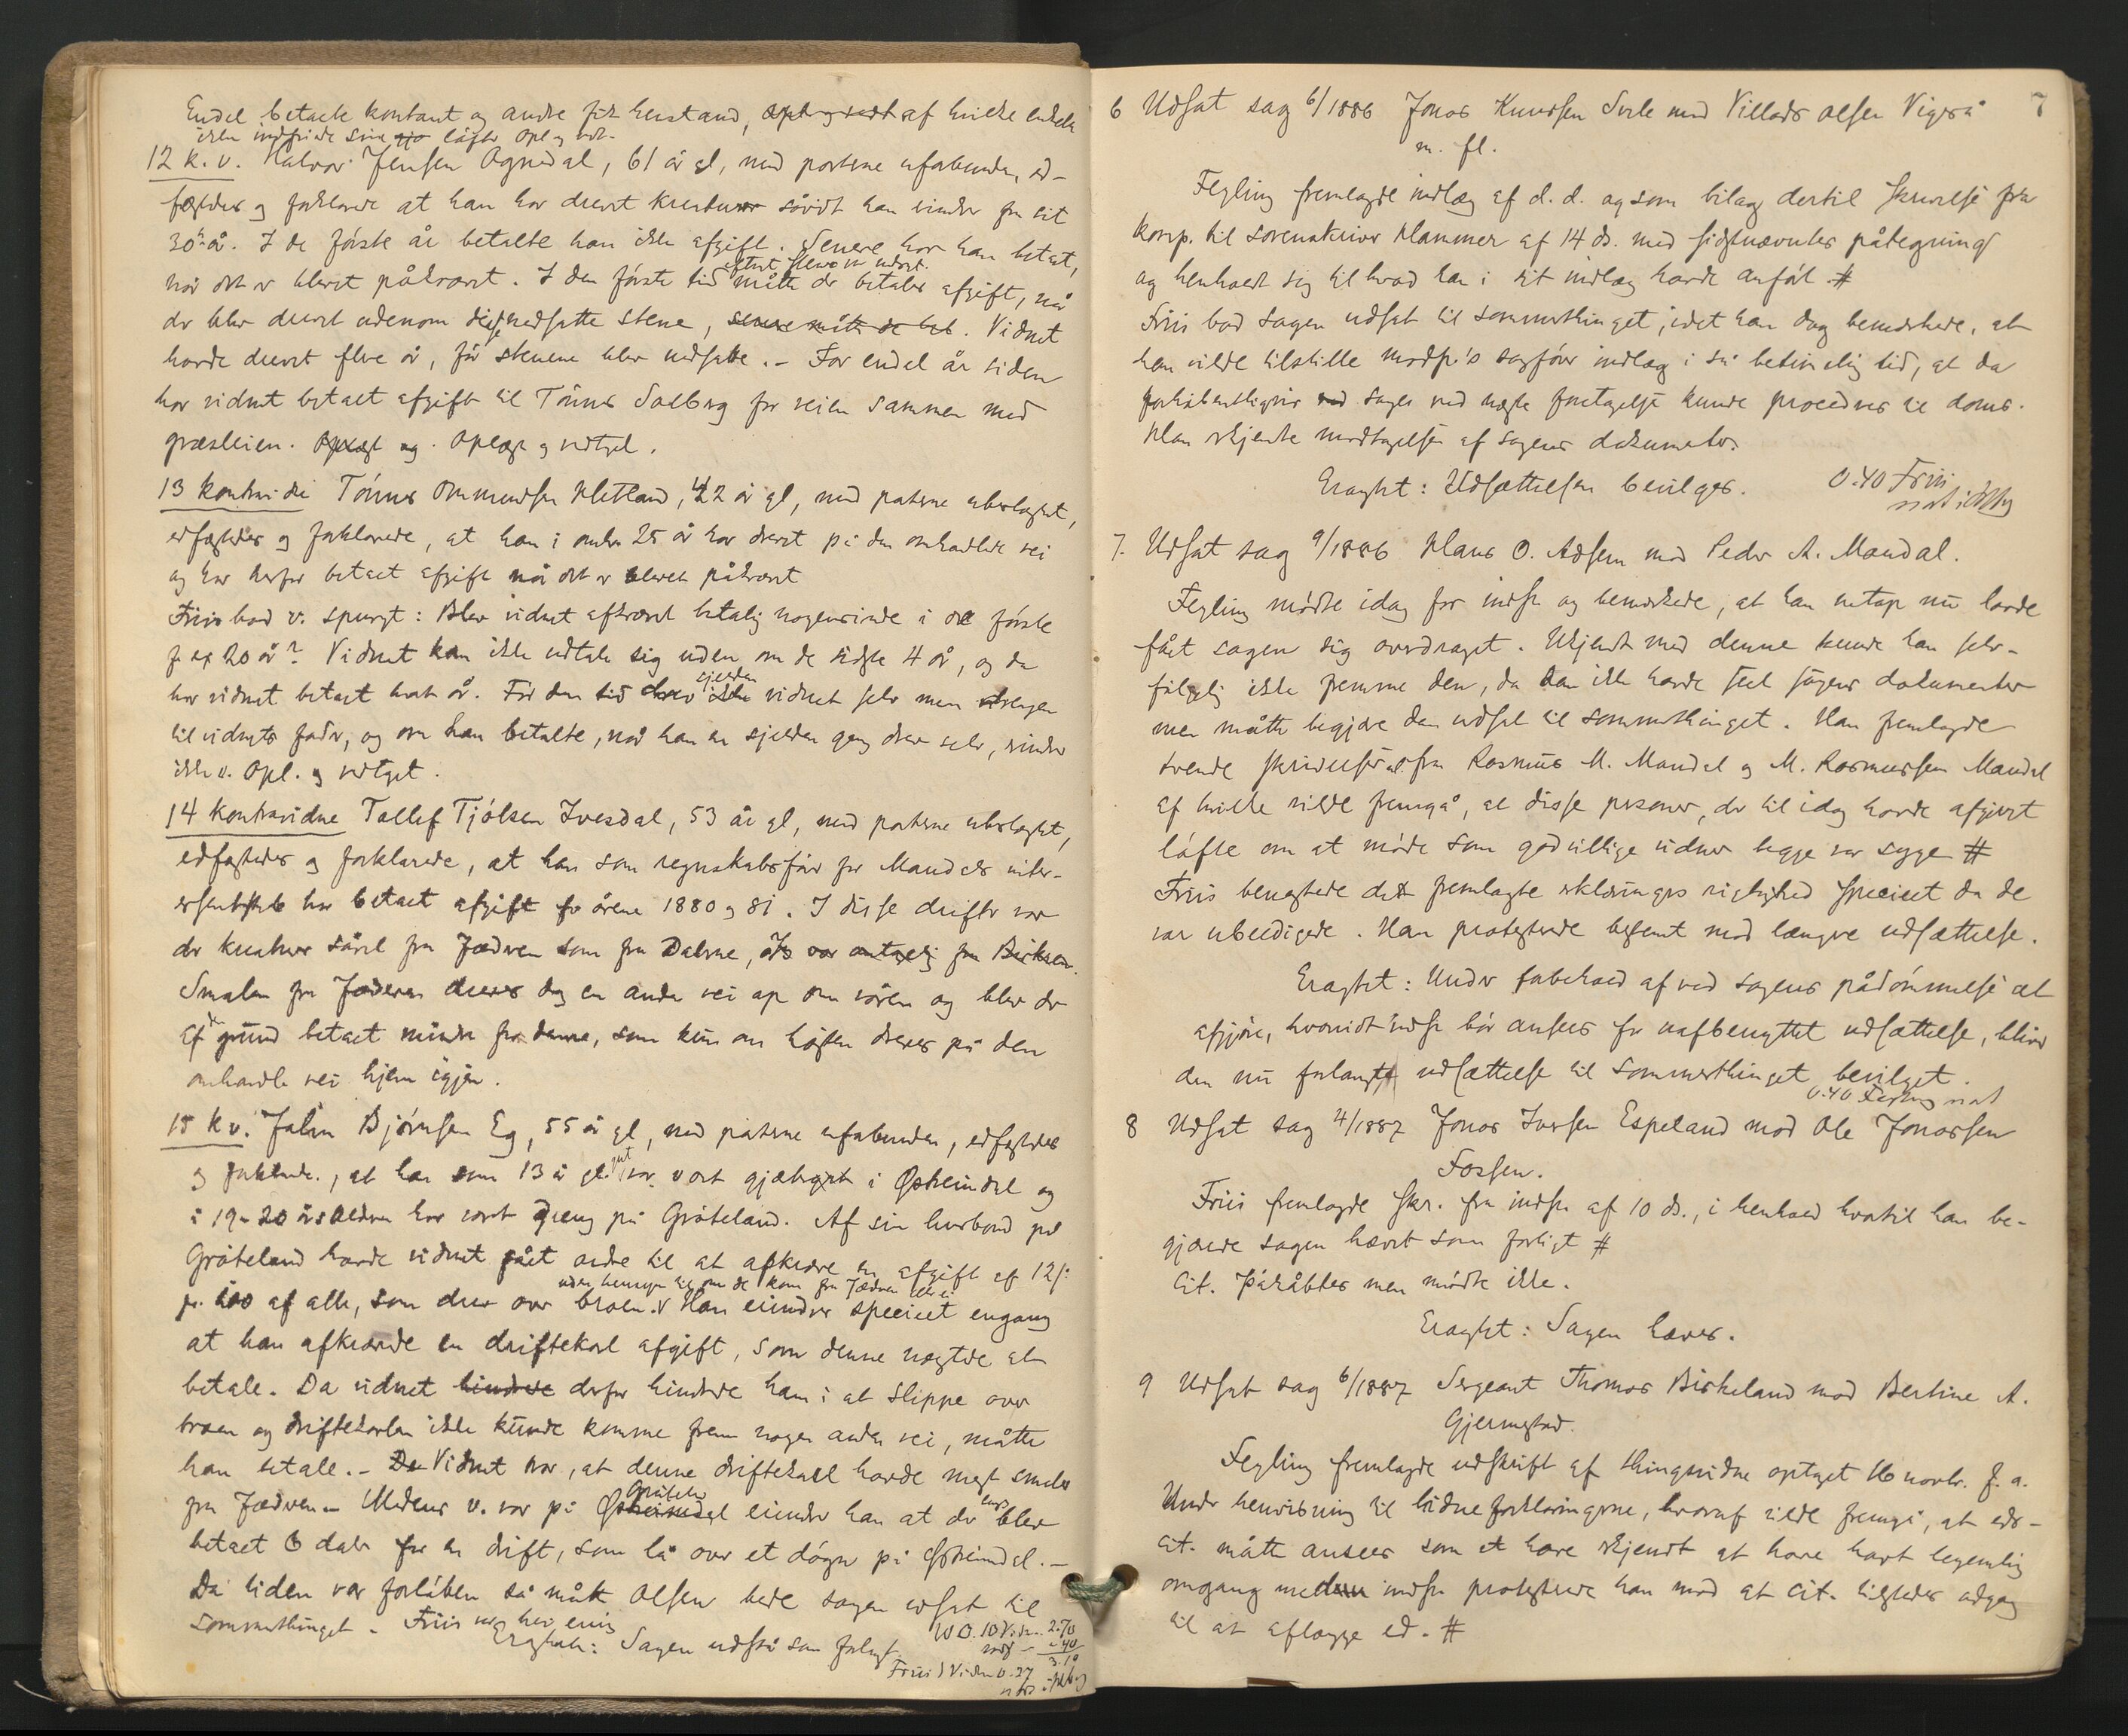 Endel betalte kontant og andre fik henstand, af hvilke enkelte
ikke indfriede sine løfter Opl og vedt.
12 k. v. Halvor Jensen Ognedal, 61 år gl, med parterne uforbunden, ed-
fæstedes og forklarede at han har drevet kreaturer såvidt han minder fra sit
30te år. I de første år betalte han ikke afgift. Senere har han betalt,
når det er blevet påkrævet. I den første tid måtte der betales afgift, når
der blev drevet udenom de nedsatte stene, senere måtte de bet. Vidnet
havde drevet flere år, før stenene blev nedsatte. - For endel år siden
har vidnet betalt afgift til Tønnes Solberg for veien sammen med
græsleien. Oplæst og . Oplæst og vedtget.
13 kontravidne Tønnes Ommundsen Kletland, 42 år gl, med parterne ubeslægtet,
edfæstedes og forklarede, at han i omtr 25 år har drevet på den omhandlede vei
og har derfor betalt afgift når det er blevet påkrævet
Friis bad v. spurgt: Blev vidnet afkrævet betaling nogensinde i de første
f ex 20 år? Vidnet kan ikke udtale sig uden om de sidste 4 år, og da
har vidnet betalt hvert år. Før den tid drev sjelden vidnet selv men drengen
til vidnets fader, og om han betalte, når han en sjelden gang drev selv, minder
ikke v. Opl. og vedtget.
14 kontravidne Tollef Tjølsen Ivesdal, 53 år gl, med parterne ubeslægtet,
edfæstedes og forklarede, at han som regnskabsfører for Maudals inter-
essentskab har betalt afgift for årene 1880 og 81. I disse drifter var
der kreaturer såvel fra Jæderen som fra Dalerne,
Smalen fra Jæderen drives dog en anden vei op om våren og blev der
af den grund betalt mindre for denne, som kun om høsten drives på den
omhandlede vei hjem igjen.
15 k v. Jalm Bjørnsen Eg, 55 år gl, med parterne uforbunden, edfæstedes
og forklarede, at han som 13 år gl. gut har vært gjætergut i Østreimdal og
i 19-20 års alderen har været dreng på Gråteland. Af sin husbond på
Gråteland havde vidnet fået ordre til at afkræve en afgift af 12 s:
pr. 100 af alle, som drev over broen. uden hensyn til om de kom fra Jæderen eller ei Han minder specielt engang
at han afkrævde en driftekarl afgift, som denne nægtede at
betale. Da vidnet hindrede derfor hindrede ham i at slippe over
broen og driftekarlen ikke kunde komme frem nogen anden vei, måtte
han betale. - Da Vidnet tror, at denne driftekarl havde mest smaler
fra Jæderen - Medens v. var på Gråtelan minder han at der blev
betalt 6 daler for en drift, som lå over et døgn på Østreimdal. -
Da tiden var forløben så måtte Olsen bede sagen udsat til
sommerthinget. Friis var heri enig
Eragtet: Sagen udstår som forlangt.
W O. 10 Vidn. 2.70
3.10
Friis 1 Vidn 0.27
7
6 Udsat sag 6/1886 Jonas Knudsen Svele mod Villads Olsen Vigeså
m. fl.
Feyling fremlagde indlæg af d. d. og som bilag dertil skrivelse fra
komp. til sorenskriver Hammer af 14 ds. med sidstnævntes påtegning
og henholdt sig til hvad han i sit indlæg havde anført #
Friis bad sagen udsat til sommerthinget, idet han dog bemærkede, at
han vilde tilstille modp's sagfører indlæg i så betimelig tid, at da
forhåbentligvis sagen ved næste foretagelse kunde procederes til doms.
Han erkjendte modtagelsen af sagens dokumenter.
Eragtet: Udsættelsen bevilges.
0.40 Friis
7. Udsat sag 9/1886 Klaus O. Adsem mod Peder A. Maudal.
Feyling mødte idag for indst og bemærkede, at han netop nu havde
fået sagen sig overdraget. Ukjendt med denne kunde han selv-
følgelig ikke fremme den, da han ikke havde seet sagens dokumenter
men måtte begjære den udsat til sommerthinget. Han fremlagde
tvende skrivelser fra Rasmus M. Maudal og M. Rasmussen Maudal
af hvilke vilde fremgå, at disse personer, der til idag havde afgivet
løfte om at møde som godvillige vidner begge var syge #
Friis benægtede det fremlagte erklærings rigtighed specielt da de
var ubeedigede. Han protesterede bestemt mod længere udsættelse.
Eragtet: Under forbehold af ved sagens pådømmelse at
afgjøre, hvorvidt indst bør ansees for uafbenyttet udsættelse, bliver
den nu forlangte udsættelse til sommerthinget bevilget.
0.40 Feyling
8 Udsat sag 4/1887 Jonas Iversen Espeland mod Ole Jonassen
Fossen.
Friis fremlagde skr. fra indst. af 10 ds., i henhold hvortil han be-
gjærede sagen hævet som forligt #
Cit. påråbtes men mødte ikke.
Eragtet: Sagen hæves.
9 Udsat sag 6/1887 Sergeant Thomas Birkeland mod Bertine A.
Gjermestad.
Feyling fremlagde udskrift af thingsvidne optaget 16 novbr. f. a.
Under henvisning til vidneforklaringerne, hvoraf vilde fremgå, at
cit. måtte ansees som at have erkjendt at have havt legemlig
omgang med indst protesterede han mod at cit. tilstedes adgang
til at aflægge ed. #